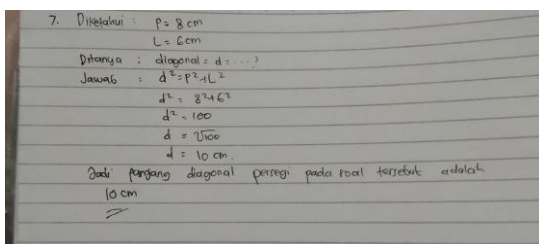 7. Diketahui : P = 8 cm
L = 6cm
Ditanya : diagonal = d = ... ?
Jawab : d² = P² + L²
d² = 8² + 6²
d² = 100
d = √100
d = 10 cm.
Jadi panjang diagonal persegi pada soal tersebut adalah
10 cm